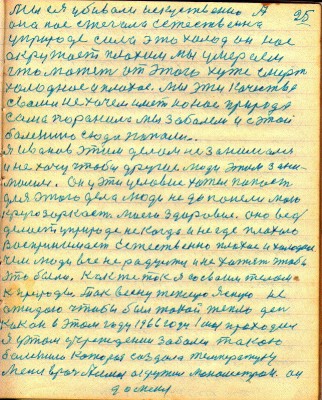 мы ея убивали искуственно. А 25
она нас сначала естественна
у природе сила это холод он нас
окружает плохим мы умераем
что может от этого хуже смерти
холодное и плохое. Мы эти качества
своими не хочем иметь но нас природа
сама поранила мы заболели и с этой
болезнию сюда попали.
Я Иванов этим делом не занимался
и не хочу чтобы другие люди этим зани-
мались. Он у эти условие хотел попасть
для этого дела люди не до поняли мою
моего здоровие. оно вед
делает у природе некогда и негде плохого
Воспринимает естественно плохое и холодное
чем люди все не радуются и не хотят чтобы
это было. Как не ток я со своим телом
к природе. Так весну тяжелую я не
ожидаю чтобы был такой тепло ден
как он в этом году 1966 году 1 мая проходил
Я у этом учреждении заболел такою
болезнию которая создала температуру
Меня врач другим он